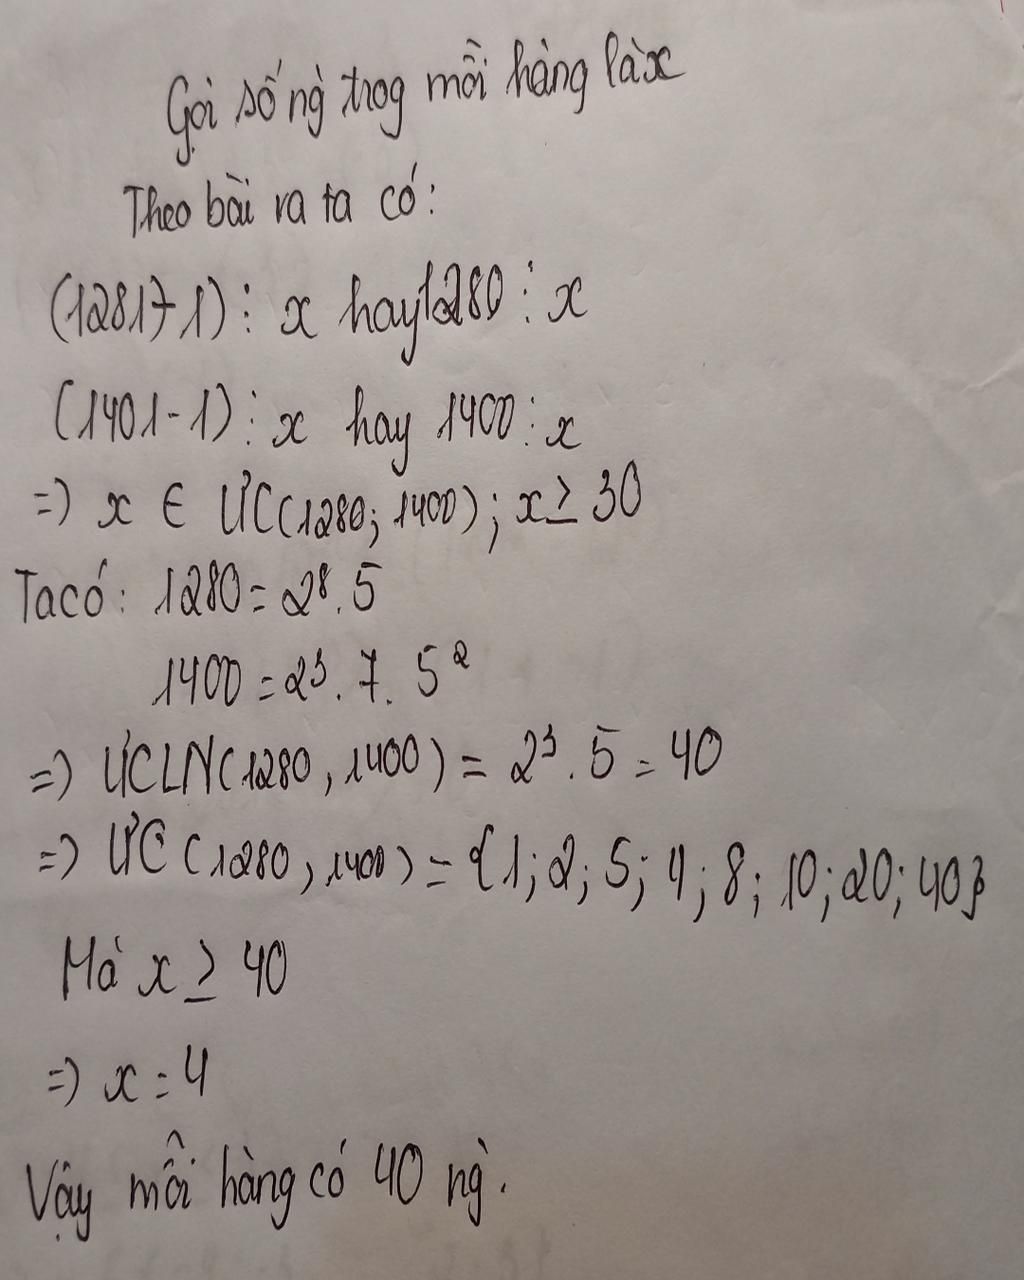 Gọi số ng̀ trog mỗi hàng là x
Theo bài ra ta có:
(1281-1) ⋮ x hay 1280 ⋮ x
(1401-1) ⋮ x hay 1400 ⋮ x
=) x ∈ ƯC(1280; 1400); x ≥ 30
Ta có: 1280 = 2⁸.5
1400 = 2³.7.5²
=) ƯCLN(1280, 1400) = 2³.5 = 40
=) ƯC (1280, 1400) = {1; 2; 5; 4; 8; 10; 20; 40}
Mà x ≥ 40
=) x = 4
Vậy mỗi hàng có 40 ng̀.